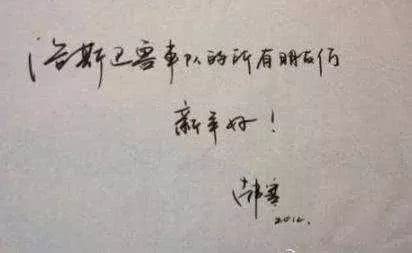 给斯巴鲁车队的所有朋友们
新年好！
韩寒
2012.